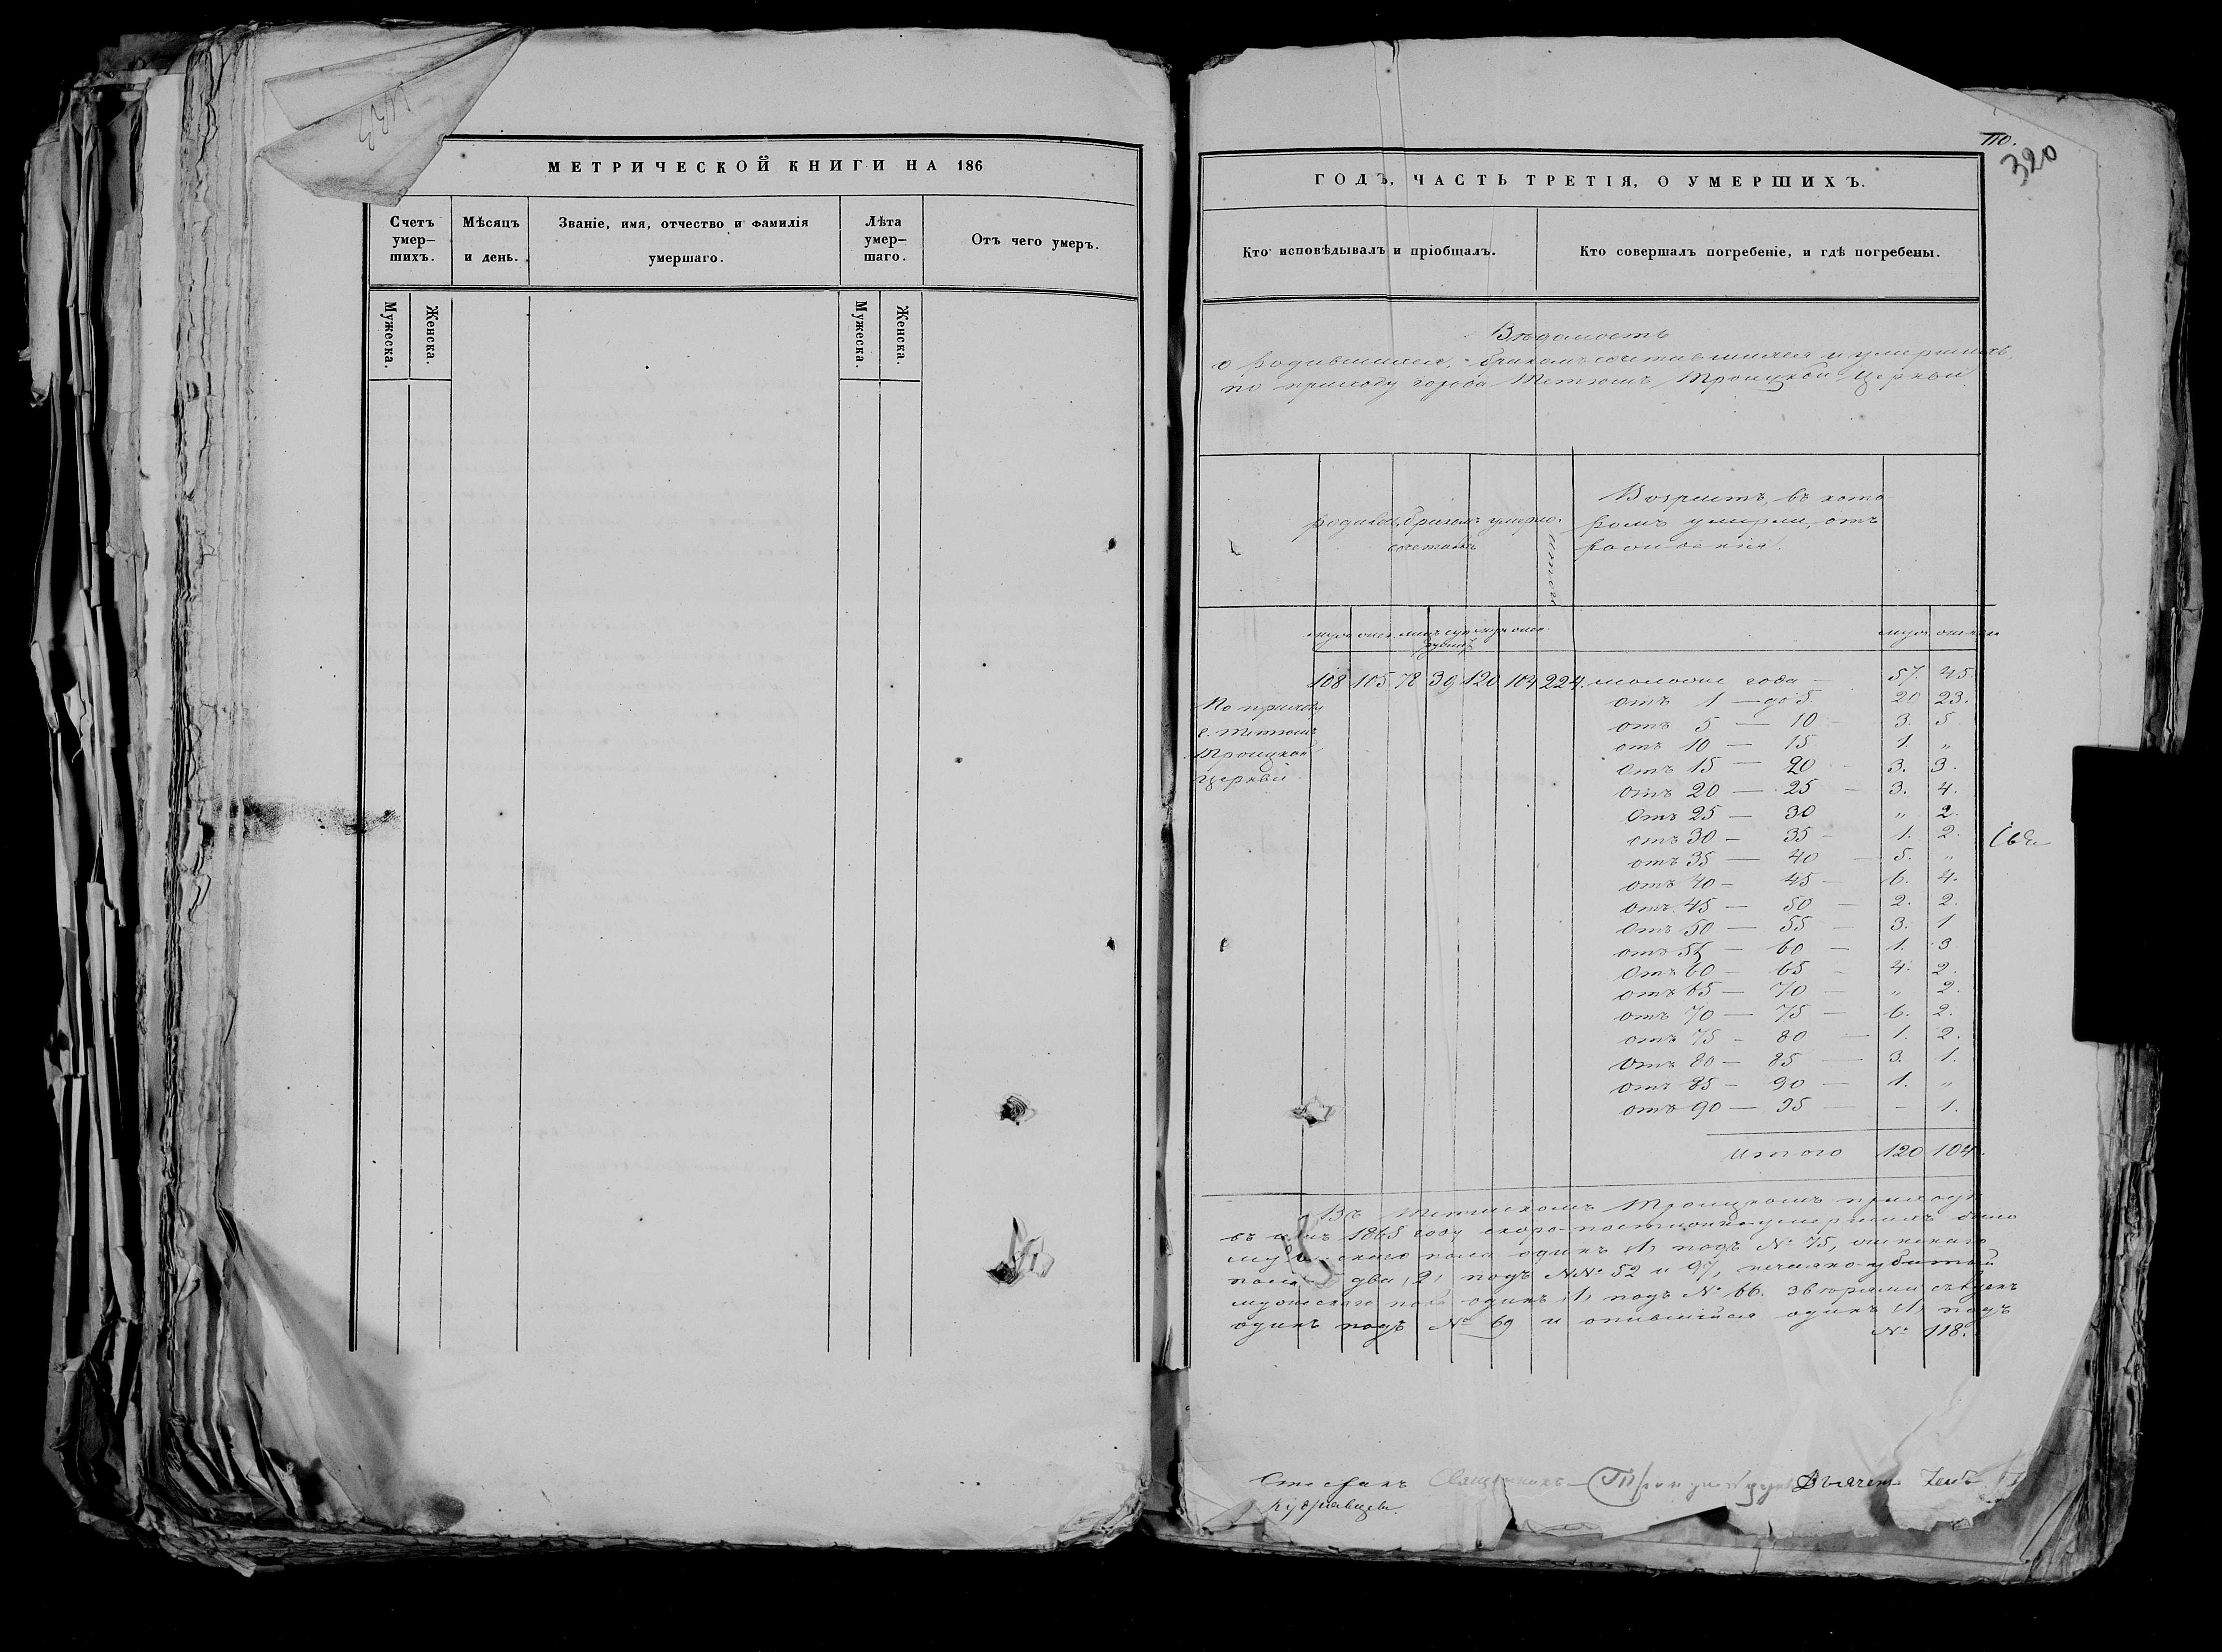 МЕТРИЧЕСКОЙ КНИГИ НА 186
Счетъ умер-шихъ.
Мѣсяцъ и день.
Званіе, имя, отчество и фамилія умершаго.
Лѣта умер-шаго.
Отъ чего умеръ.
Мужеска.
Женска.
Мужеска.
Женска.
110.
320
ГОДЪ, ЧАСТЬ ТРЕТІЯ, О УМЕРШИХЪ.
Кто исповѣдывалъ и пріобщалъ.
Кто совершалъ погребеніе, и гдѣ погребены.
Вѣдомость
о родившихся, бракомъ сочетавшихся и умершихъ,
по приходу города Тетюшъ Троицкой Церкви.
родилось бракомъ сочетавш. умерло. итого
Возрастъ, въ кото
ромъ умерли, отъ
рожденія.
108 105 78 39 120 104 224. моложе года — 57. 45.
По приходу
г. Тетюшъ
Троицкой
Церкви.
отъ 1 — до 5. 20 23.
отъ 5 — 10 — 3. 5
отъ 10 — 15 1. „
отъ 15 — 20 3. 3.
отъ 20 — 25 — 3. 4.
отъ 25 — 30 „ 2.
отъ 30 — 35 — 1. 2.
отъ 35 — 40 — 5. „
отъ 40 — 45 — 6. 4.
отъ 45 — 50 — 2. 2.
отъ 50 — 55 — 3. 1
отъ 55 — 60 — 1. 3
отъ 60 — 65 — 4. 2.
отъ 65 — 70 — „ 2.
отъ 70 — 75 — 6. 2.
отъ 75 — 80 — 1. 2.
отъ 80 — 85 — 3. 1.
отъ 85 — 90 — 1. „
отъ 90 — 95 — - 1.
Итого 120 104.
Въ Тетюшскомъ Троицкомъ приходѣ
въ 1865 году скоро-постижно умершихъ было
мужескаго пола одинъ /1/ подъ № 75, женскаго
пола два /2/ подъ №№ 52 и 97, нечаянно убитый
мужескаго пола одинъ /1/ подъ № 66. звѣрями съѣденъ
одинъ подъ № 69 и опившійся одинъ /1/ подъ
№ 118.
Священникъ